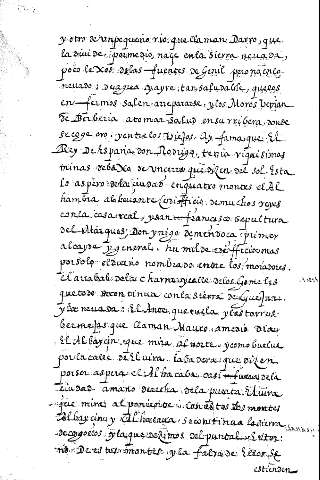 y otro de un pequeño rio, que llaman Darro, que
la divide, por medio, naçe en la sierra nevada,
poco lexos de las fuentes de Genil pero no en lo
nevado: de agua y ayre, tan saludable, que los
enfermos salen a repararse, y los Moros venian
de Berberia a tomar salud en su ribera, donde
se coge oro, y entre los viejos, ay fama que, El
Rey de España don Rodrigo, tenia riquisimas
minas debaxo de un cerro que dizen del sol. Esta
lo aspero de la ciudad en quatro montes el Al
hambra al levante, edifficio, de muchos reyes
con la, casa real, y san francisco sepultura
del Marques, Don ynigo de mendoça: primer
alcayde y general, humilde edifficio mas
por solo el dueño nombrado entre los moradores.
el arrabal y calle de los Gomeles
que todo se continua con la sierra de
y la nevada: El Antequeruela y las torres
bermejas que llaman Mauror, a medio dia
El Albayzin, que mira al norte, y como buelve
por la calle de Elvira. la ladera, que dizen,
por ser aspera el Alhacaba casi fuera de la
ciudad a mano derecha de la puerta Elvira
que mira al poniente: con estos dos montes
Albayzin y Alhacaba se continua la sierra
de cogollos y la que dezimos del puntal. En tor
no De estos montes, y la falda de Ellos, se
estienden